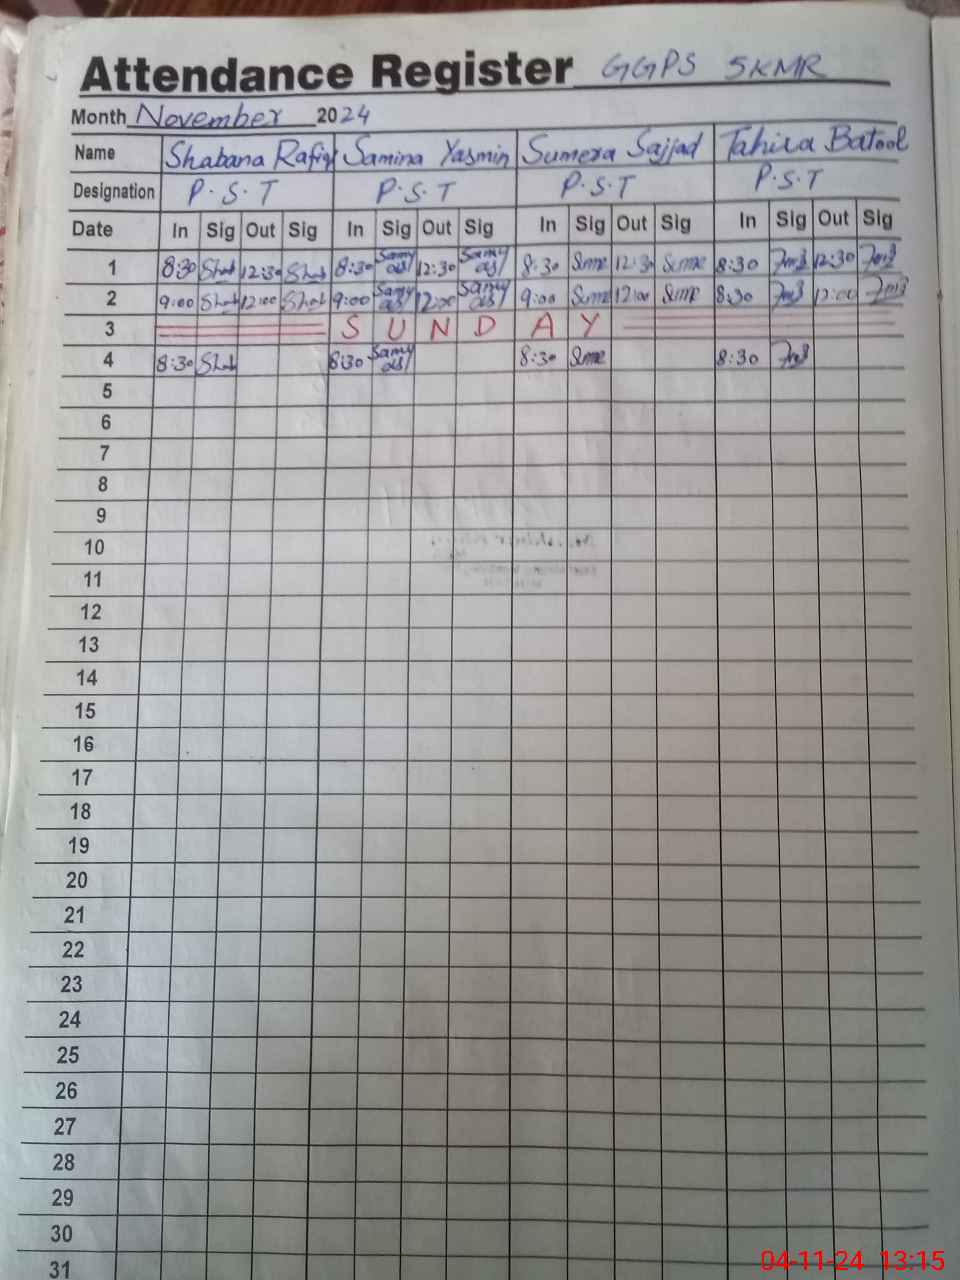 Attendance Register GGPS SKMR
Month November 2024
Name Shabana Rafiq Samina Yasmin Sumera Sajjad Tahira Batool
Designation P.S.T P.S.T P.S.T P.S.T
Date In Sig Out Sig In Sig Out Sig In Sig Out Sig In Sig Out Sig
1 8:30 Shab 12:30 Shab 8:30 12:30 8:30 Sume 12:30 Sume 8:30 12:30
2 9:00 Shab 12:00 Shab 9:00 12:00 9:00 Sume 12:00 Sume 8:30 12:00
3 SUNDAY
4 8:30 Shab 8:30 8:30 Sume 8:30
5
6
7
8
9
10
11
12
13
14
15
16
17
18
19
20
21
22
23
24
25
26
27
28
29
30
31
04-11-24 13:15